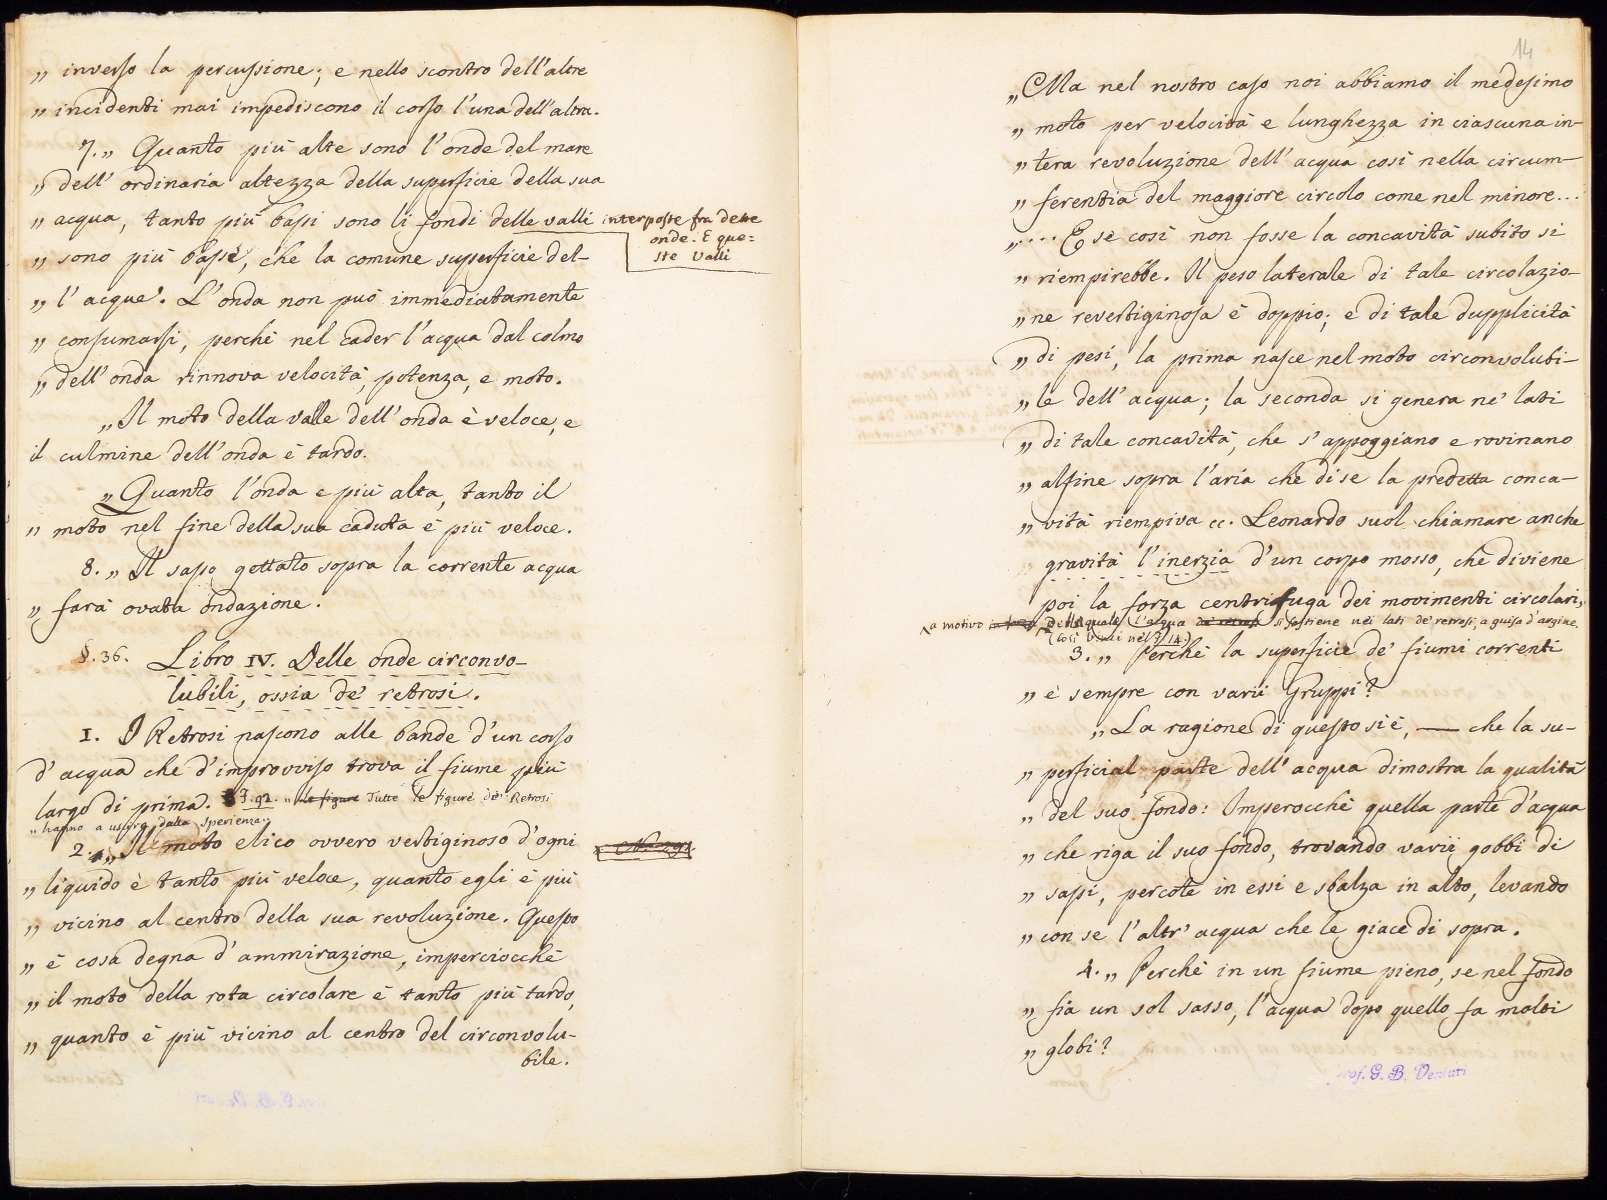 „ inverso la percussione; e nello scontro dell'altre
„ incidenti mai impediscono il corso l'una dell'altra.
7. „ Quanto più alte sono l'onde del mare
„ dell' ordinaria altezza della superficie della sua
„ acqua, tanto più bassi sono li fondi delle valli interposte fra dette
onde. E que=
ste valli
„ sono più basse, che la comune superficie del-
„ l' acque. L'onda non può immediatamente
„ consumarsi, perchè nel cader l'acqua dal colmo
„ dell' onda rinnova velocità, potenza, e moto.
„ Il moto della valle dell' onda è veloce, e
il culmine dell' onda è tardo.
„ Quanto l'onda e più alta, tanto il
„ moto nel fine della sua caduta è più veloce.
8. „ Il sasso gettato sopra la corrente acqua
„ farà ovata ondazione.
§. 36. Libro IV. Delle onde circonvo-
lubili, ossia de' retrosi.
1. I Retrosi nascono alle bande d'un corso
d'acqua che d'improvviso trova il fiume più
largo di prima. F. 92. „ le figure Tutte le figure de' Retrosi
„ hanno a uscire dalla sperienza.
2. „ Il moto elico ovvero vertiginoso d'ogni
„ liquido è tanto più veloce, quanto egli è più
„ vicino al centro della sua revoluzione. Questo
„ è cosa degna d'ammirazione, imperciocchè
„ il moto della rota circolare è tanto più tardo,
„ quanto è più vicino al centro del circonvolu-
bile.
14
„ Ma nel nostro caso noi abbiamo il medesimo
„ moto per velocità e lunghezza in ciascuna in-
„ tera revoluzione dell' acqua così nella circum-
„ ferentia del maggiore circolo come nel minore...
„ .... E se così non fosse la concavità subito si
„ riempirebbe. Il peso laterale di tale circolazio-
„ ne revertiginosa è doppio; e di tale dupplicità
„ di pesi, la prima nasce nel moto circonvolubi-
„ le dell' acqua; la seconda si genera ne' lati
„ di tale concavità, che s'appoggiano e rovinano
„ alfine sopra l'aria che di se la predetta conca-
„ vità riempiva cc. Leonardo suol chiamare anche
gravità l'inerzia d'un corpo mosso, che diviene
poi la forza centrifuga dei movimenti circolari,
a motivo della quale l'acqua si sostiene nei lati de' retrosi, a guisa d'argine.
(Così Vinci nel F. 14.)
3. „ Perchè la superficie de' fiumi correnti
„ è sempre con varii Gruppi?
„ La ragione di questo si è, — che la su-
„ perficial parte dell' acqua dimostra la qualità
„ del suo fondo: Imperocchè quella parte d'acqua
„ che riga il suo fondo, trovando varii gobbi di
„ sassi, percote in essi e sbalza in alto, levando
„ con se l'altr' acqua che le giace di sopra.
4. „ Perchè in un fiume pieno, se nel fondo
„ fia un sol sasso, l'acqua dopo quello fa molti
„ globi?
Prof. G. B. Venturi